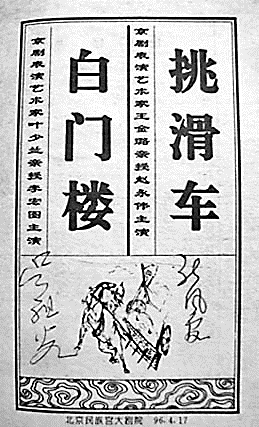 挑滑车
京剧表演艺术家王金璐亲授赵永伟主演
白门楼
京剧表演艺术家叶少兰亲授李宏图主演
北京民族宫大剧院 96.4.17